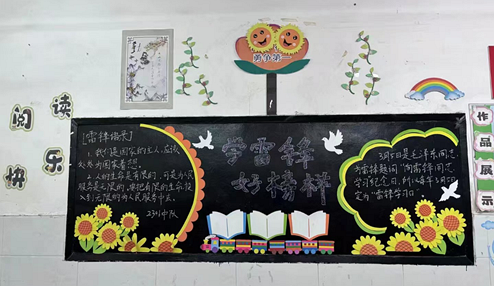 勇争第一
阅读
快乐
作品展示
学雷锋
好榜样
[雷锋格言]
1.我们是国家的主人,应该
处处为国家着想。
2.人的生命是有限的,可是为人民
服务是无限的,我把有限的生命投
入到无限的为人民服务中去。
3月5日是毛泽东同志
为雷锋题词"向雷锋同志
学习纪念日,
定为"雷锋学习日"